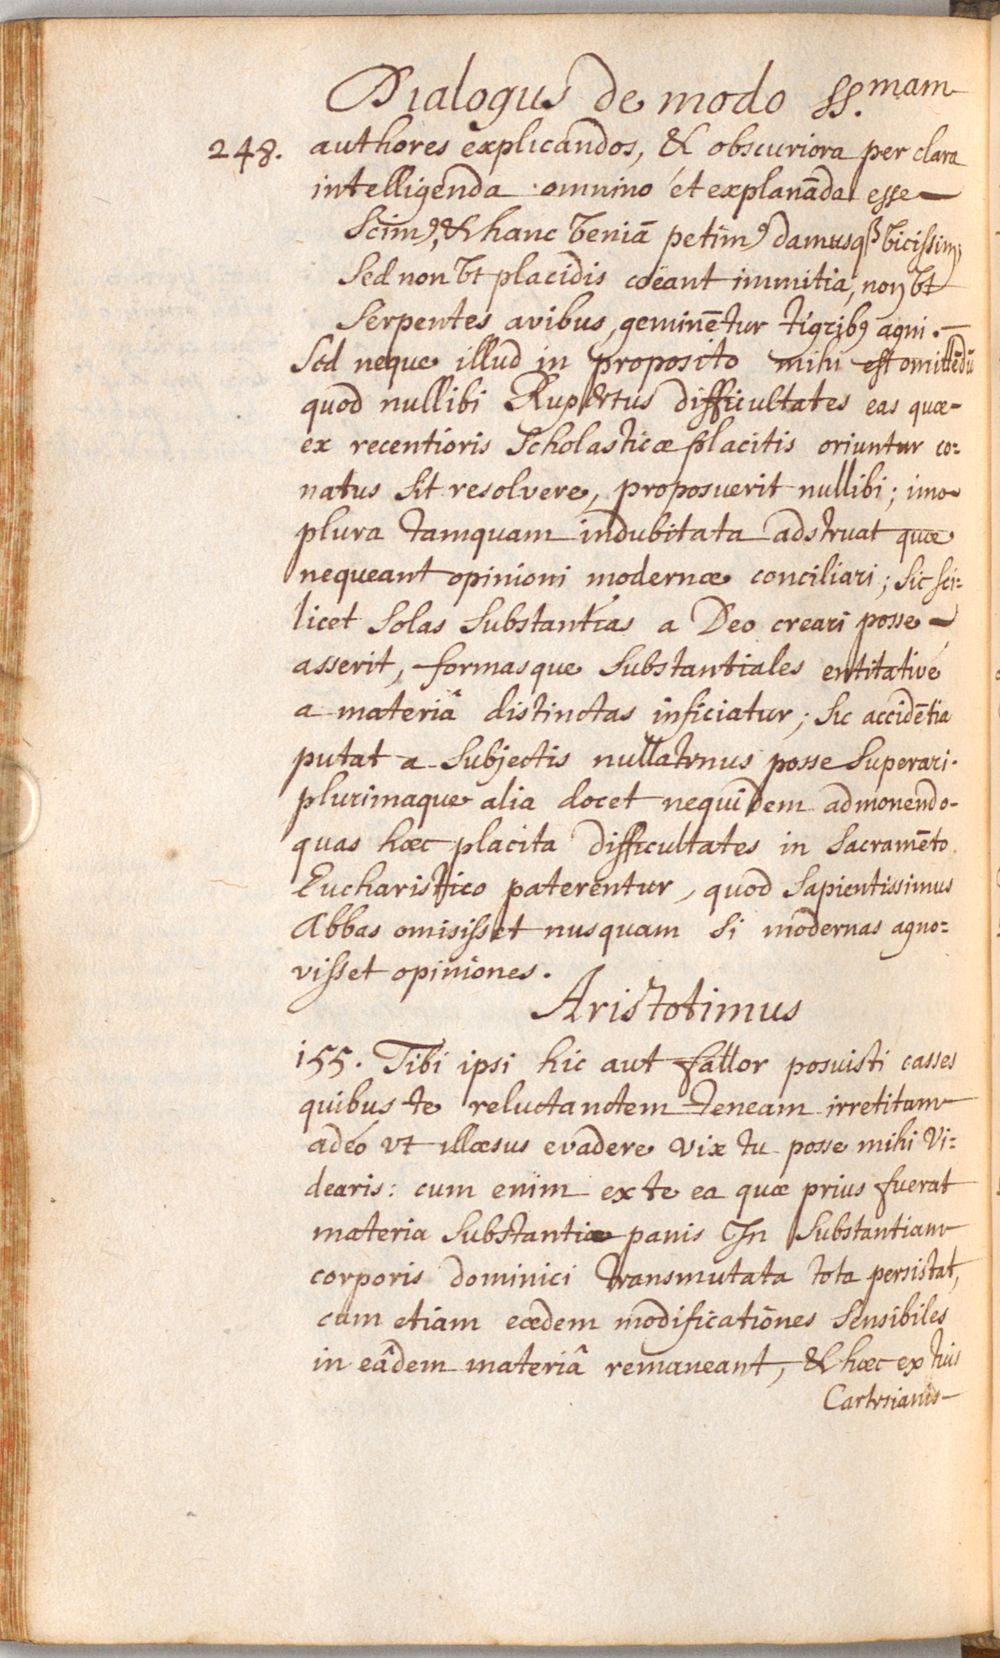 Dialogus de modo SS.mam
248. authores explicandos, & obscuriora per clara
intelligenda omnino et explanāda esse
Scim9, & hanc veniā petim9 damusq3 vicissim;
Sed non vt placidis coëant immitia, non vt
Serpentes avibus geminētur tigrib9 agni.
Sed neque illud in proposito mihi est omittēdū
quod nullibi Rupertus difficultates eas quæ
ex recentioris Scholasticæ placitis oriuntur co=
natus sit resolvere, proposuerit nullibi; imo
plura tamquam indubitata adstruat quæ
nequeant opinioni modernæ conciliari; sic sci=
licet Solas Substantias a Deo creari posse
asserit, formasque Substantiales entitativè
a materiâ distinctas inficiatur; sic accidētia
putat a Subjectis nullatenus posse Superari.
plurimaque alia docet nequidem admonendo
quas hæc placita difficultates in Sacramēto
Eucharistico paterentur, quod Sapientissimus
Abbas omisisset nusquam si modernas agno=
visset opiniones.
Aristotimus
155. Tibi ipsi hic aut fallor posuisti casses
quibus te reluctanctem teneam irretitam
adeó vt illæsus evadere vix tu posse mihi vi=
dearis: cum enim ex te ea quæ prius fuerat
materia Substantiæ panis In Substantiam
corporis dominici transmutata tota persistat,
cum etiam eædem modificationes Sensibiles
in eâdem materiâ remaneant, & hæc ex tuis
Cartesianis